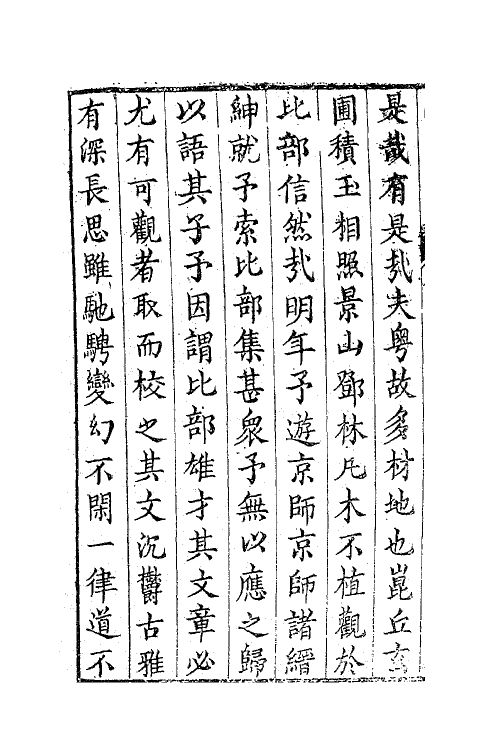 是哉有是哉夫粤故多材地也崑丘玄
圃積玉相照景山鄧林凡木不植觀於
比部信然哉明年予遊京師京師諸縉
紳就予索比部集甚衆予無以應之歸
以語其子予因謂比部雄才其文章必
尤有可觀者取而校之其文沉鬱古雅
有深長思雖馳騁變幻不閑一律道不